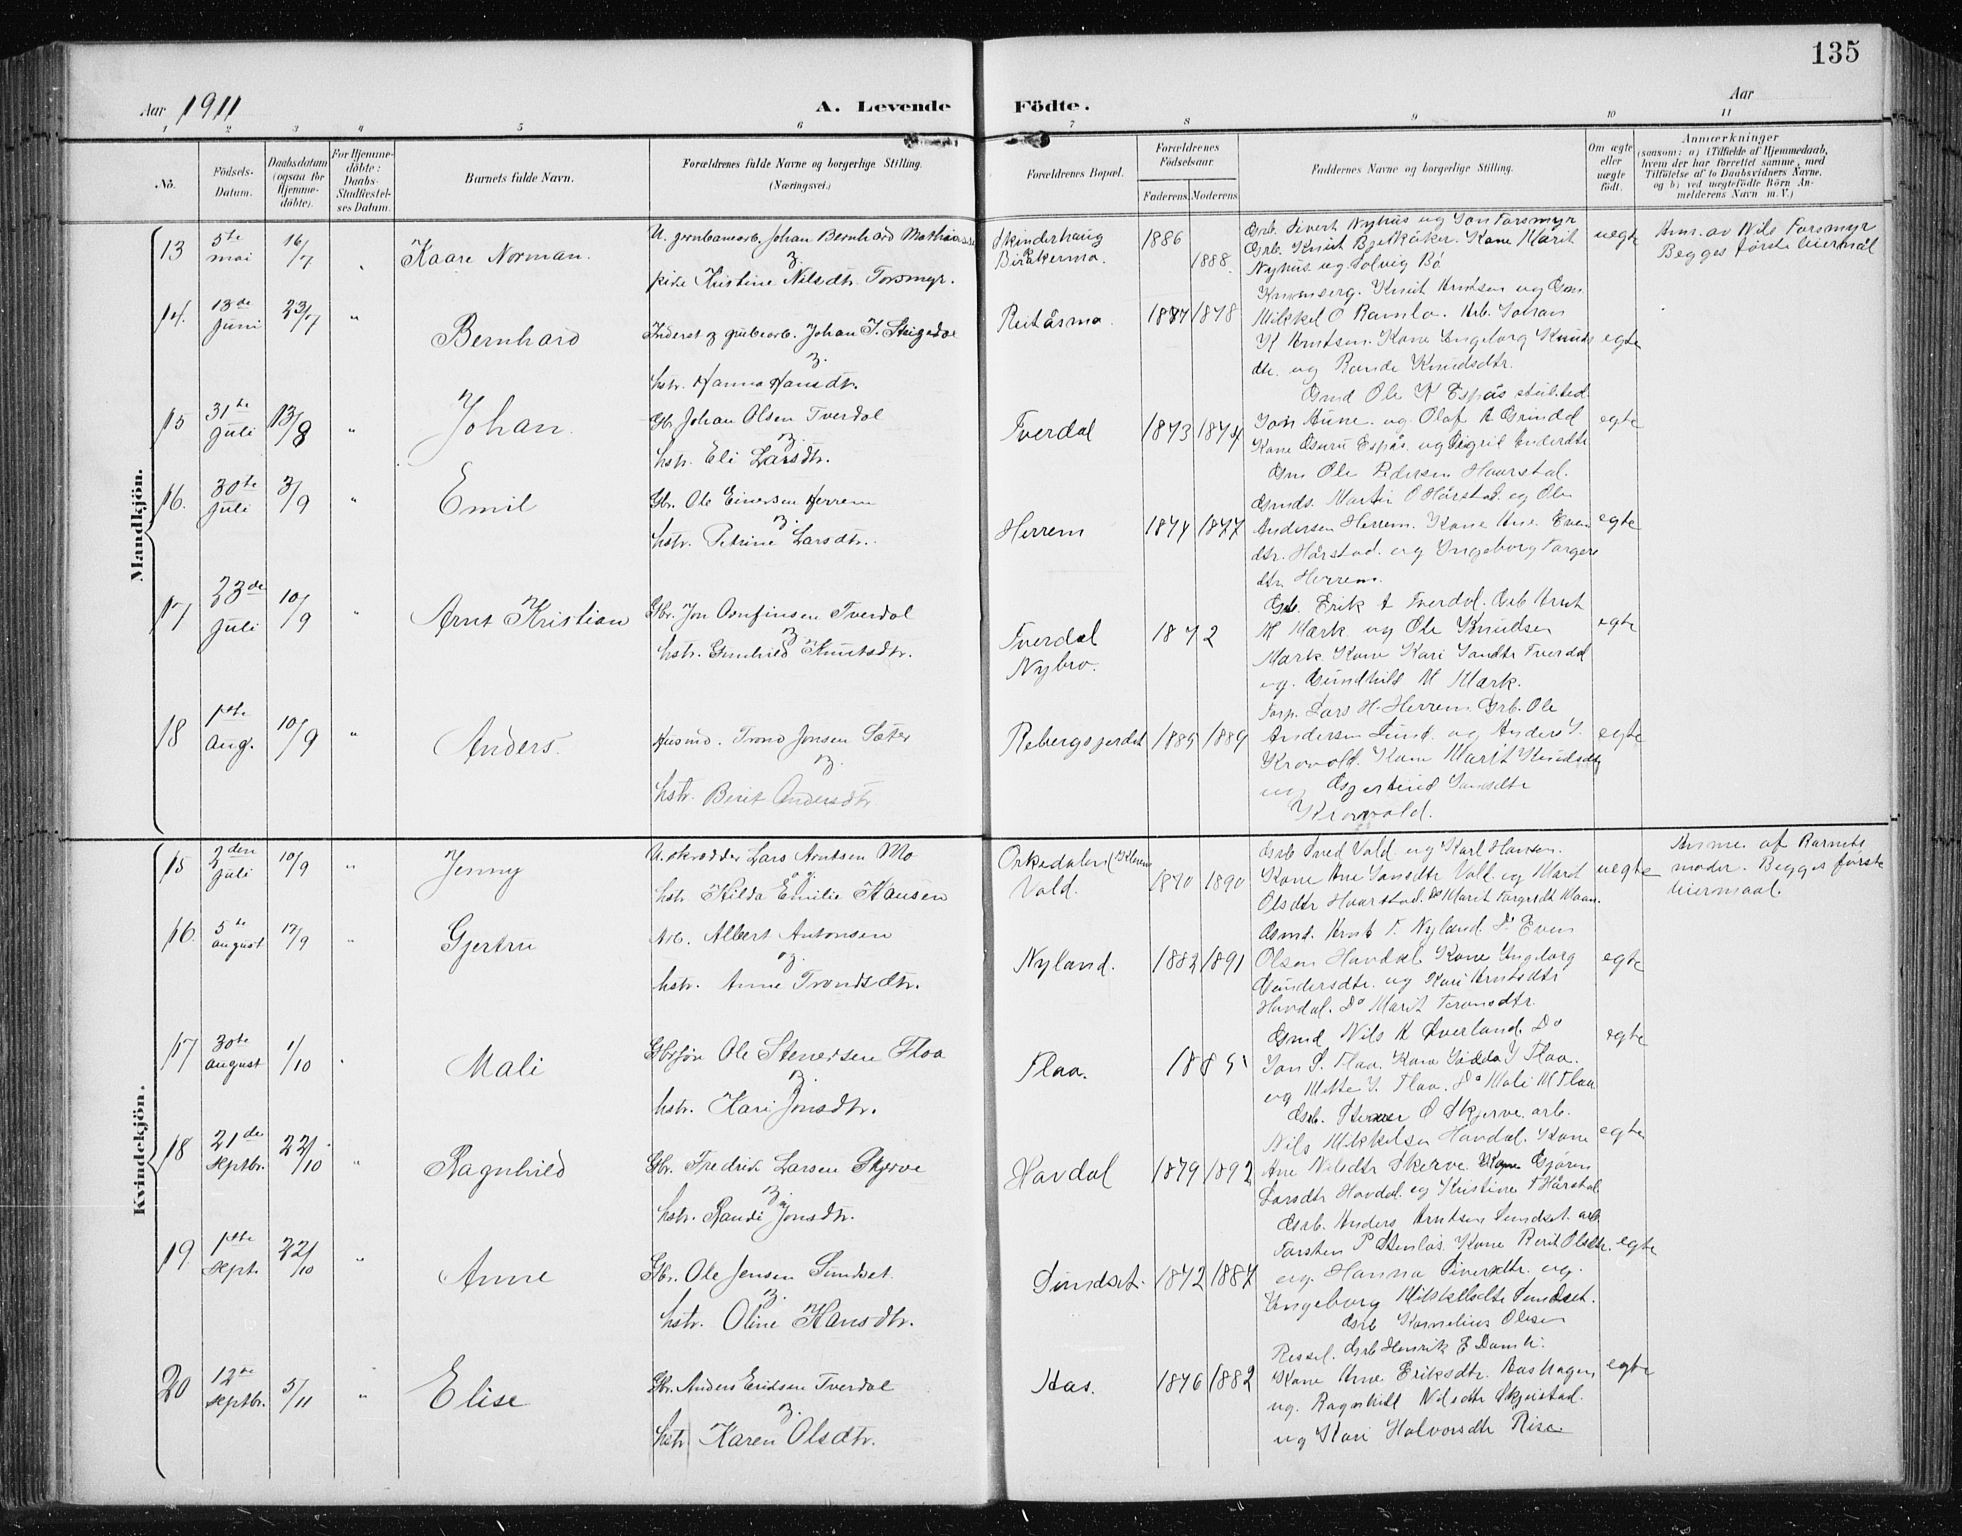 135
Aar 1911 A. Levende Födte. Aar
1 2 3 4 5 6 7 8 9 10 11
No.
Födsels-Datum.
Daabsdatum (ogsaa for Hjemmedöbte).
For Hjemmedöbte: Daabs-Stadfæstelses Datum.
Barnets fulde Navn.
Forældrenes fulde Navne og borgerlige Stilling. (Næringsvei.)
Forældrenes Bopæl.
Forældrenes Födselsaar.
Faderens. Moderens.
Faddernes Navne og borgerlige Stilling.
Om ægte eller uægte födt.
Anmærkninger
(saasom: a) i Tilfælde af Hjemmedaab, hvem der har forrettet samme, med Tilföielse af to Daabsvidners Navne, og b) ved uægtefödte Börn Anmelderens Navn m. V.)
Mandkjön.
13 5te mai 16/7 " Kaare Norman.
U. grubearb. Johan Bernhard Mathiassen
&
pike Kristine Nilsdtr. Forsmyr.
Skinderhaug
1886 1888.
Grb. Sivert Nyhus og Jon Forsmyr
Grb. Knut Bjerkåker. Kone Marit
Nyhus og Solvig Bö
uegte
Anm. av Nils Forsmyr
Begges förste leiermål
14. 13de Juni 23/7 " Bernhard
Inderst og grubearb. Johan J.
&
hstr. Hanna Hansdtr.
Reitåsmo. 1877 1878
Mikkel O Ramlo. Arb. Johan
K Arntsen. Kone Ingeborg Knuds
dtr. og Rande Knudsdtr.
egte
15 31te Juli 13/8 " Johan.
Gb. Johan Olsen Tverdal
&
hstr. Eli Larsdtr.
Tverdal 1873 1874
Gmd Ole K Espås
Jon Aune. og Olaf A Grindal
Kone Guru Espås og Sigril
egte
16. 30te Juli 3/9 " Emil
Gbr. Ole Einersen Herrem
&
hstr. Petrine Larsdtr.
Herrem 1874 1877
Gm Ole Pedersen Haarstad.
Gmds. Martin O Hårstad. og Ole
Andersen Herrem. Kone Ane Even
dtr. Hårstad. og Ingeborg
dtr. Herrem.
egte
17 23de Juli 10/9 " Arnt Kristian
Gbr. Jon Arnfinsen Tverdal
&
hstr. Gunhild Knutsdtr.
Tverdal
Nybro.
1872
Gb. Erik A Tverdal. Grb Arnt
M Mark og Ole Knudsen
Mark Kone Kari Jonsdtr Tverdal
og. Gundhild M Mark.
egte
18 1ste Aug. 10/9 " Anders.
Husmd. Trond Jonsen Sæter
&
hstr. Berit Andersdtr
Rebergsjerdet 1885 1889
Forp. Lars H. Herrem Grb. Ole
Andersen Lund og Anders J.
Krovold. Kone Marit Knudsdtr
og Gjertrud Jonsdtr
Krovold.
egte
Kvindekjön.
15 2den Juli 10/9 " Jenny
U. skrædder Lars Arntsen Mo
og
hstr. Hilda Emilie Hansen
Orkedalen
Vold.
1870 1890
Grb Sved Vold og Karl Hansen.
Kone Ane Jonsdtr Voll og Marit
Olsdtr Haarstad.
uegte
Anm. af Barnets
moder. Begges förste
leiermaal.
16. 5te august 17/9 " Gjertru
Arb. Albert Antonsen
&
hstr. Anne Trondsdtr.
Nyland. 1882 1891
Gmd. Arnt T. Nyland. Do Even
Olsen Havdal Kone Ingeborg
Gundersdtr. og Kari Arntsdtr
Havdal. Do Marit
egte
17 30te august 1/10 " Mali
Gbrsön Ole Stenersen Flaa
&
hstr. Kari Jonsdtr.
Flaa. 1885
Gmd Nils K Överland. Do
Jon S. Flaa. Kone
og Mette J. Flaa. Do Mali M Flaa
egte
18 21de septbr. 22/10 " Ragnhild
Gbr. Fredrik Larsen Skjerve
&
hstr. Randi Jonsdtr.
Havdal 1879 1892
Grb. Stener O Skjerve. arb.
Nils Mikkelsen Havdal. Kone
Ane Nilsdtr Skerve. Kone Gjören
Larsdtr Havdal og Kristine T Hårstad
egte
19 1ste sept. 22/10 " Anne
Gbr. Ole Jensen Sundset.
&
hstr. Oline Hansdtr.
Sundset. 1872 1887
Grb. Anders Arntsen Sundset. arb
Torsten P Stenløs. Kone Berit Olsdtr.
og. Hanna Siversdtr. og.
Ingeborg Mikkelsdtr Sundset.
egte
20 12te septbr. 5/11 " Elise
Gbr. Anders Eriksen Tverdal
&
hstr. Karen Olsdtr.
Aas. 1876 1882
Grb Kornelius Olsen
Ressel. Grb Henrik E Damli.
Kone Ane Eriksdtr. Aashagen
og. Ragnhild Nilsdtr Skjeistad.
og Kari Halvorsdtr Rise
egte